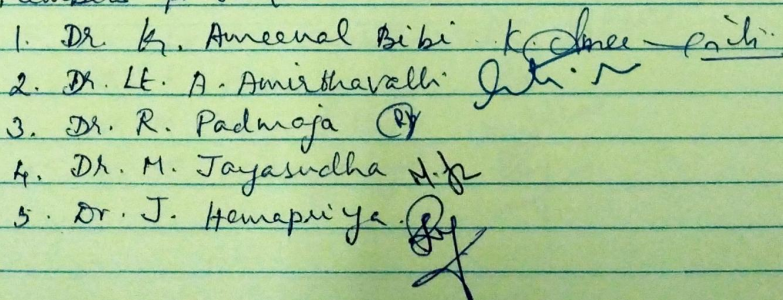 1. Dr. K. Ameenal Bibi K. Ameenal Bibi
2. Dr. Lt. A. Amirthavalli
3. Dr. R. Padmaja
4. Dr. M. Jayasudha M. J
5. Dr. J. Hemapriya